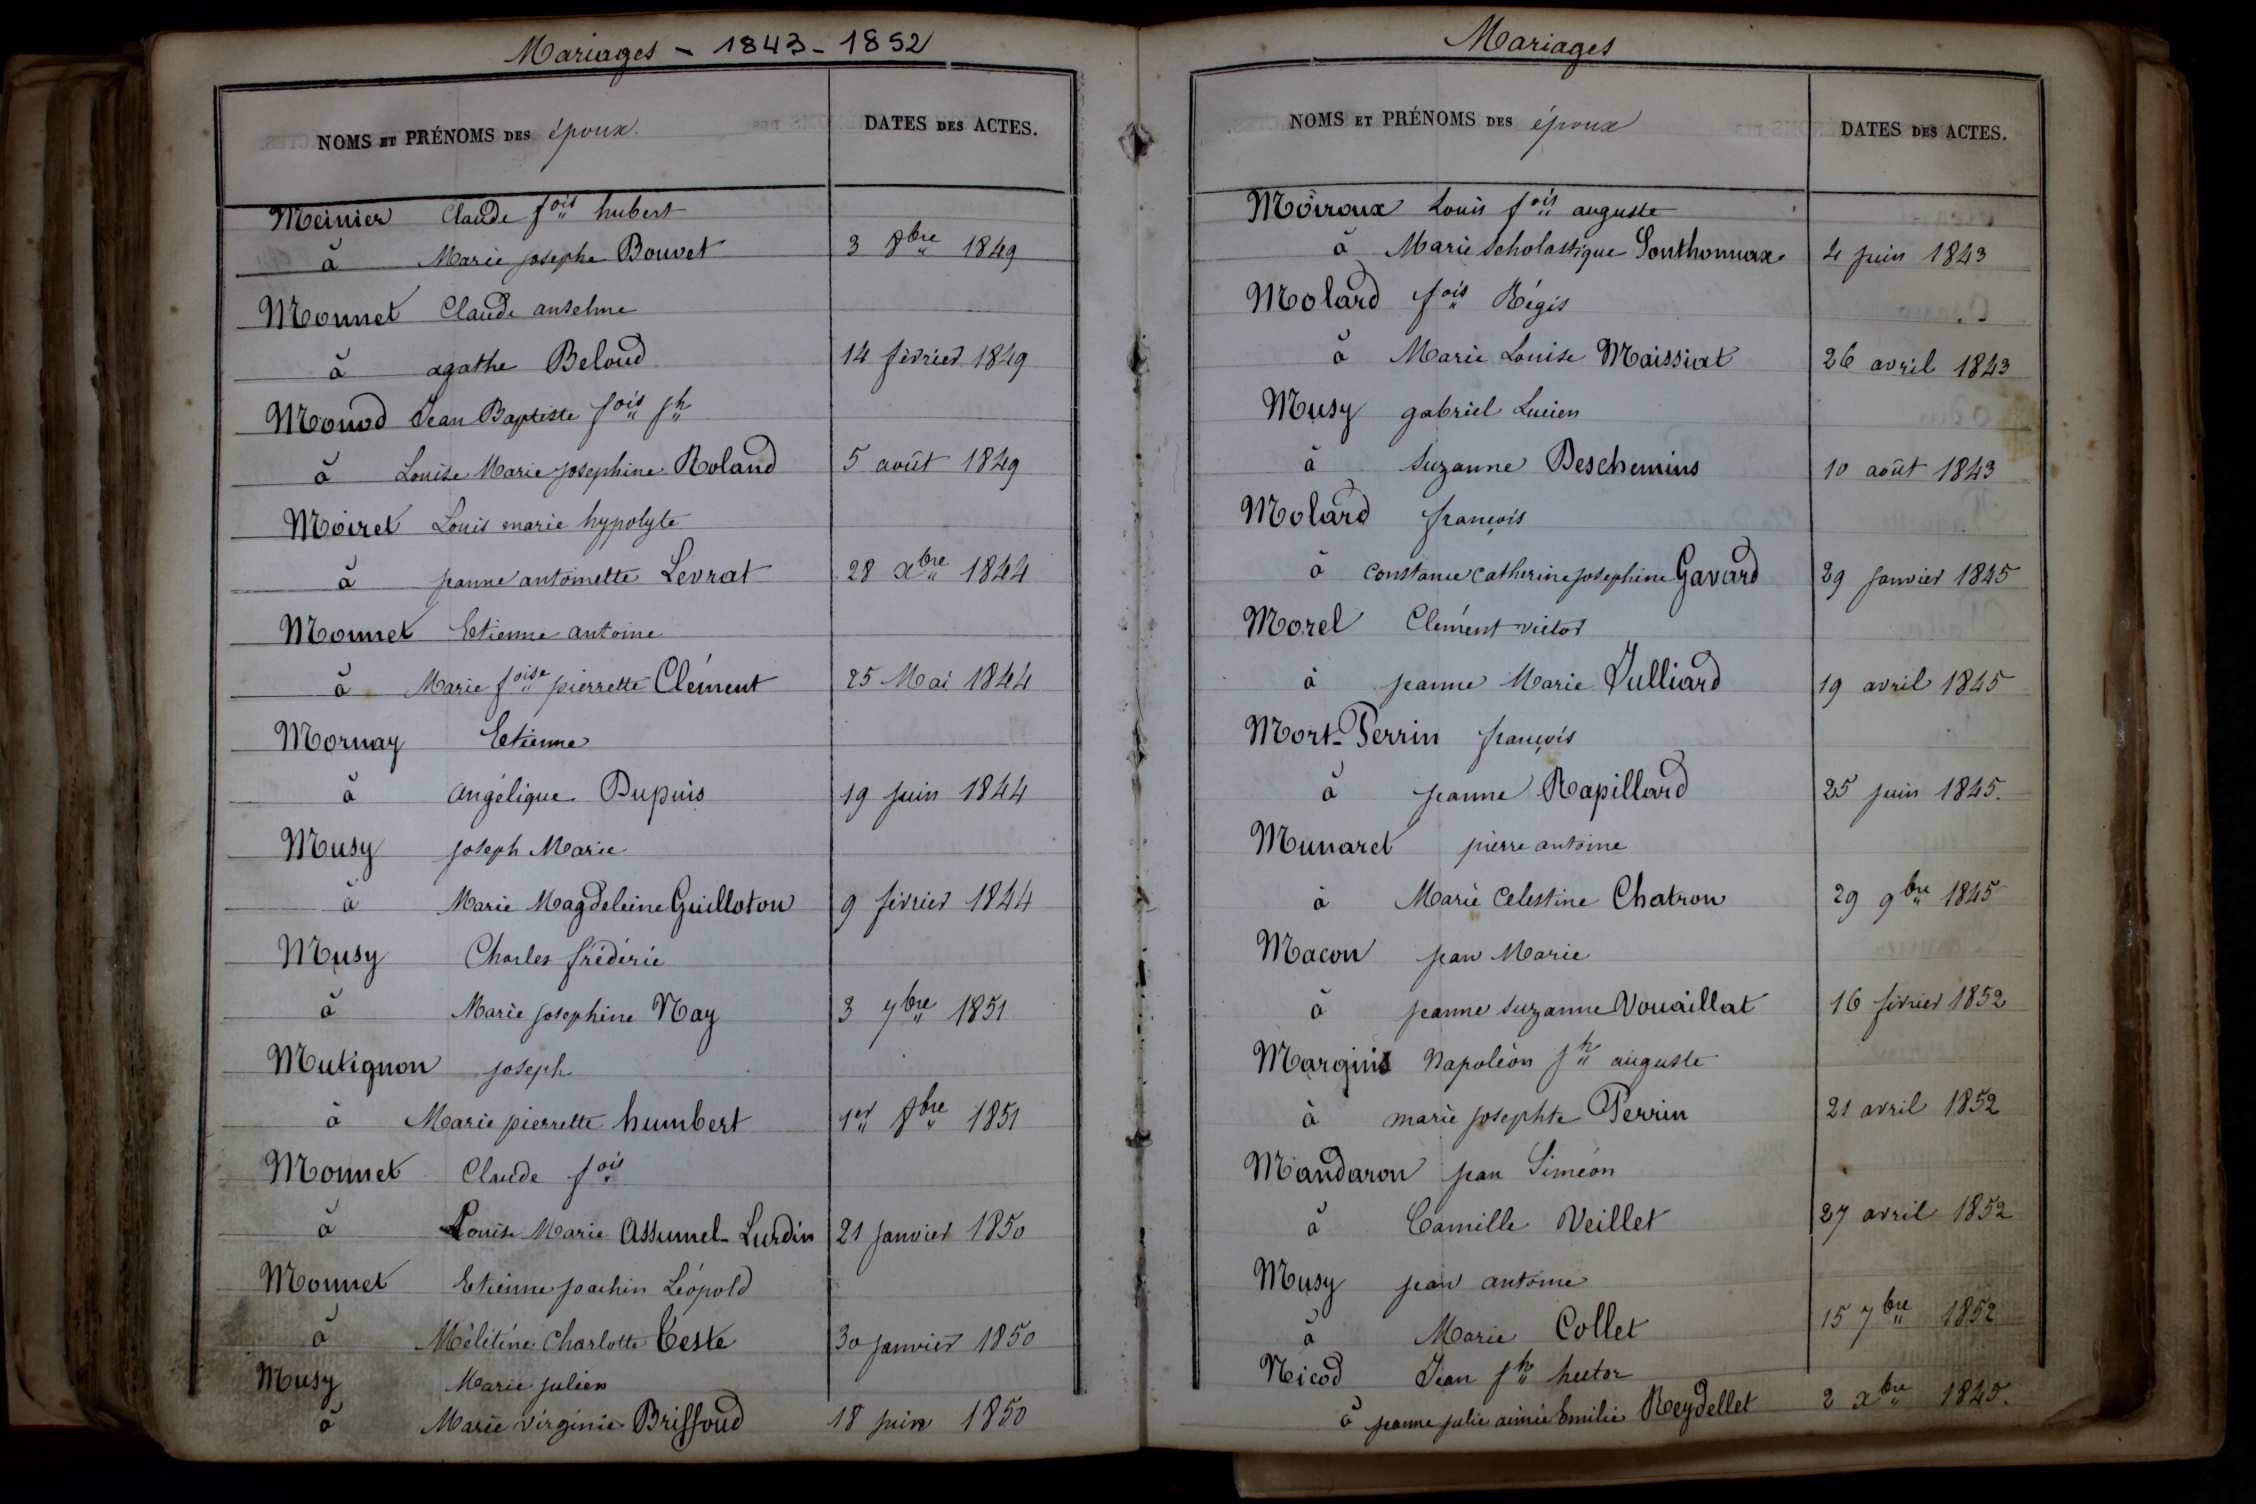 Mariages - 1843 - 1852
NOMS ET PRÉNOMS DES époux. DATES DES ACTES.
Meinier Claude fois hubert
à Marie josephe Bouvet 3 8bre 1849
Monnet Claude anselme
à agathe Beloud 14 février 1849
Monod Jean Baptiste fois jh
à Louise Marie josephine Roland 5 août 1849
Moiret Louis marie hypolyte
à jeanne antoinette Levrat 28 xbre 1844
Monnet Etienne antoine
à Marie foise pierrette Clément 25 Mai 1844
Mornay Etienne
à angélique Dupuis 19 juin 1844
Musy joseph Marie
à Marie Magdeleine Guilloton 9 février 1844
Musy Charles frédéric
à Marie josephine Nay 3 7bre 1851
Mutignon joseph
à Marie pierrette humbert 1er 8bre 1851
Monnet Claude fois
à Louise Marie Assumel-Lurdin 21 janvier 1850
Monnet Etienne joachin Léopold
à Mélitine Charlotte Teste 30 janvier 1850
Musy Marie julien
à Marie virginie Briffoud 18 juin 1850
Mariages
NOMS ET PRÉNOMS DES époux DATES DES ACTES.
Moiroux Louis fois auguste
à Marie scholastique Sonthonnax 4 juin 1843
Molard fois Régis
à Marie Louise Maissiat 26 avril 1843
Musy gabriel Lucien
à suzanne Deschemins 10 août 1843
Molard françois
à constance catherine josephine Gavard 29 janvier 1845
Morel Clément victor
à jeanne Marie Julliard 19 avril 1845
Mort-Perrin françois
à jeanne Rapillard 25 juin 1845.
Munaret pierre antoine
à Marie celestine Chatron 29 9bre 1845
Macon jean Marie
à jeanne suzanne Vouaillat 16 février 1852
Margins Napoléon jh auguste
à marie josephte Perrin 21 avril 1852
Mandaron jean Siméon
à Camille Veillet 27 avril 1852
Musy jean antoine
à Marie Collet 15 7bre 1852
Nicod Jean jh hector
à jeanne julie aimée Emilie Reydellet 2 xbre 1845.